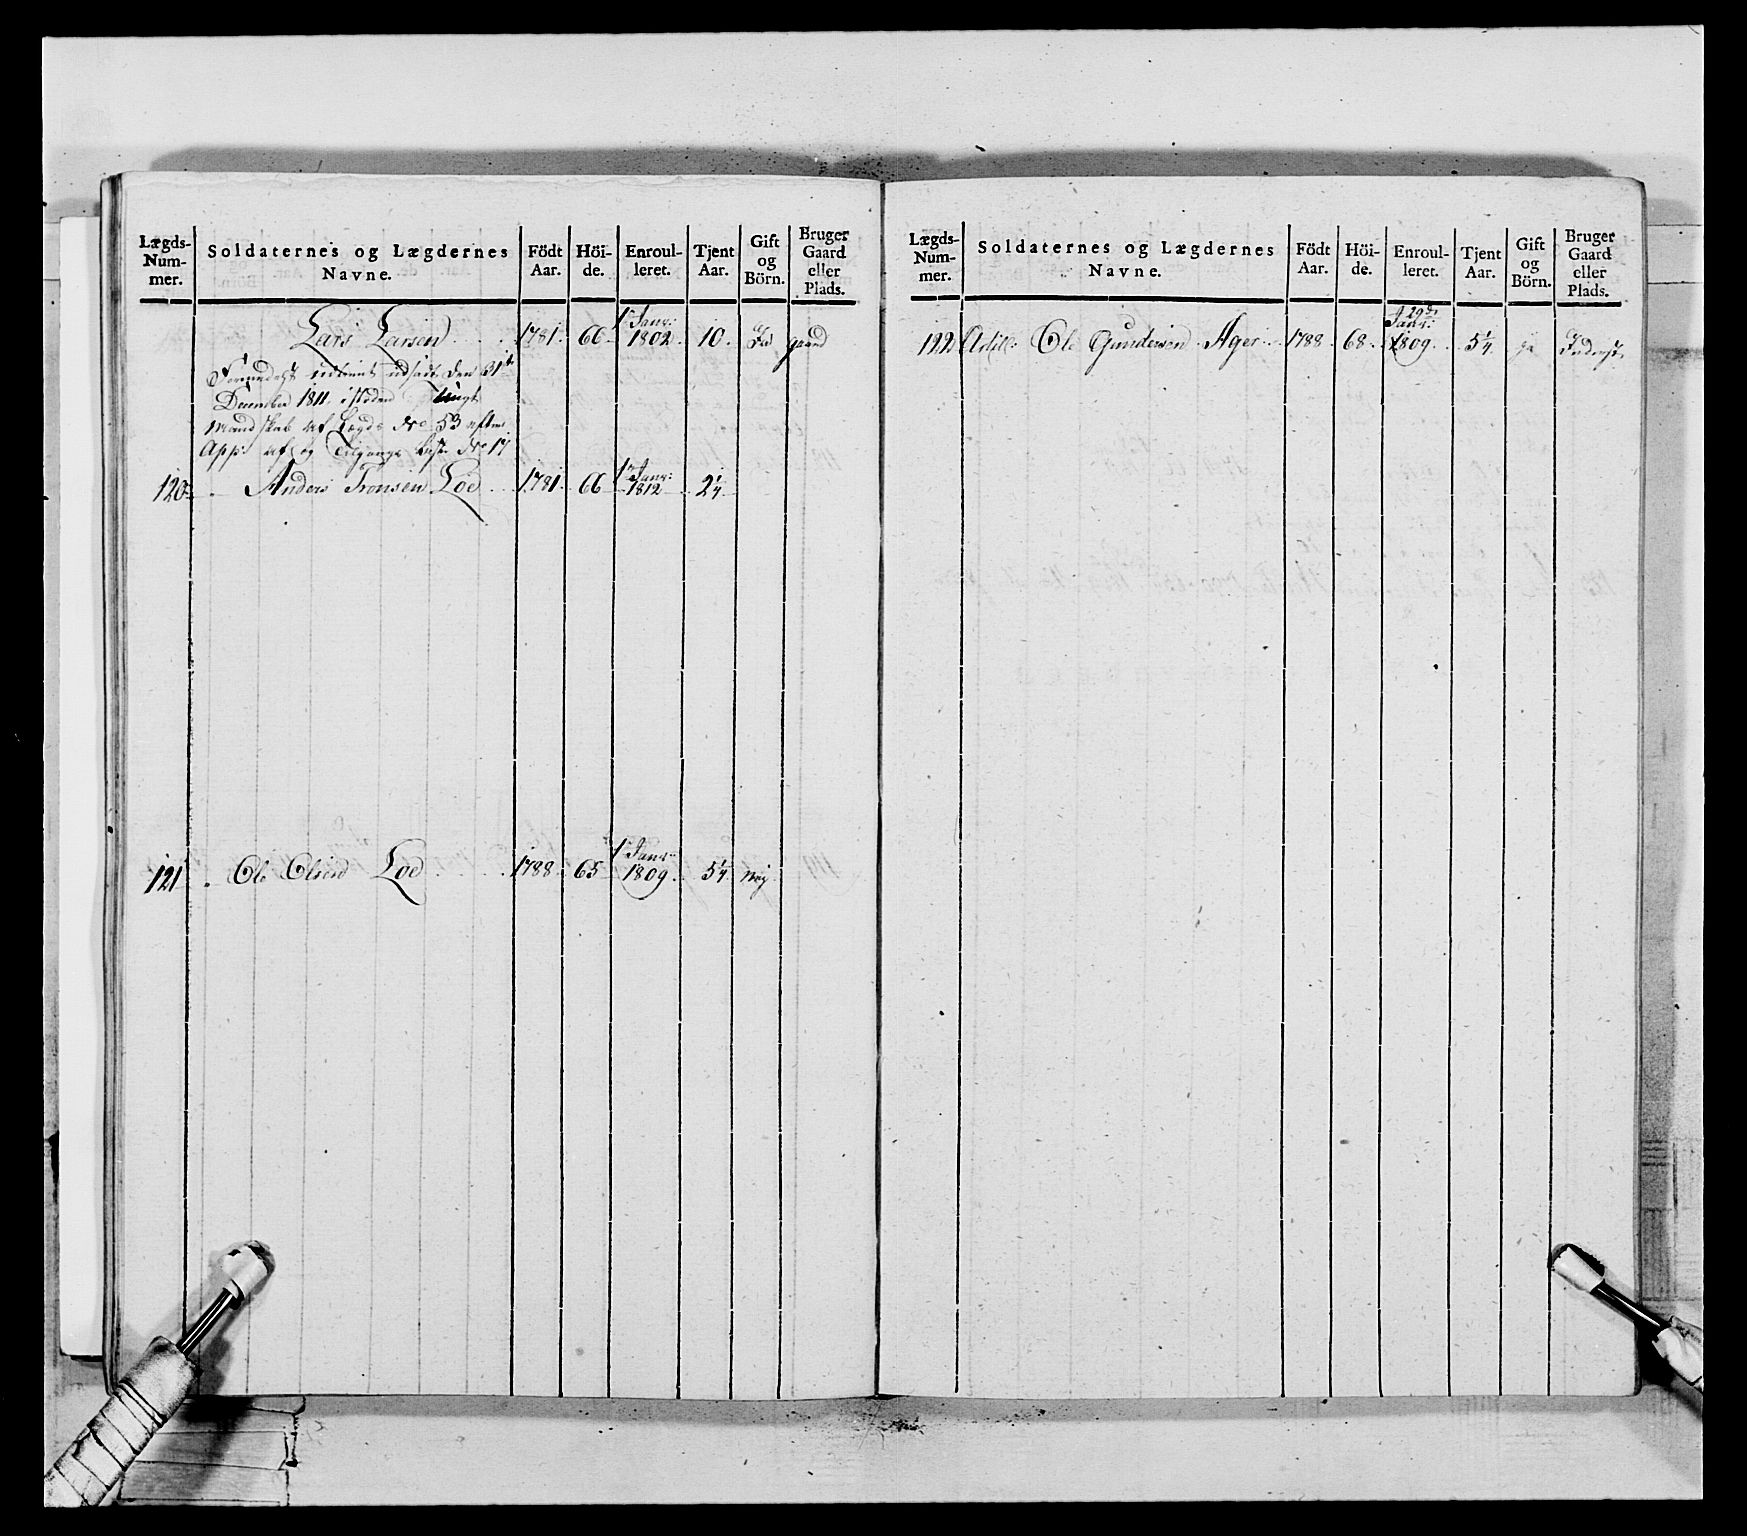 Lægds-Num-mer. Soldaternes og Lægdernes Navne. Födt Aar. Höi-de. Enroul-leret. Tjent Aar. Gift og Börn. Bruger Gaard eller Plads.
Lars Larsen 1781. 66 1 Janr: 1802. 10. Ja gaard
udsadt den 31te
December 1811 i steden
Mandskab af Lægd No 53 efter
App: af og Tilgangs Liste No 17
120. Anders Tronsen Loe 1781. 66 1 Janr: 1812 2 1/4
121. Ole Olsen Loe 1788. 65 1 Janr: 1809. 5 1/4 Nej
Lægds-Num-mer. Soldaternes og Lægdernes Navne. Födt Aar. Höi-de. Enroul-leret. Tjent Aar. Gift og Börn. Bruger Gaard eller Plads.
122 Ole Gundersen Ager 1788 68 29de Janr: 1809. 5 1/4 ja